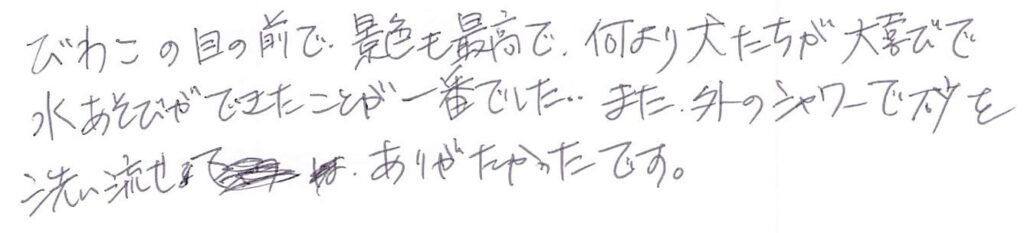 びわこの目の前で、景色も最高で、何より犬たちが大喜びで
水あそびができたことが一番でした。また、外のシャワーで砂を
洗い流せて、ありがたかったです。